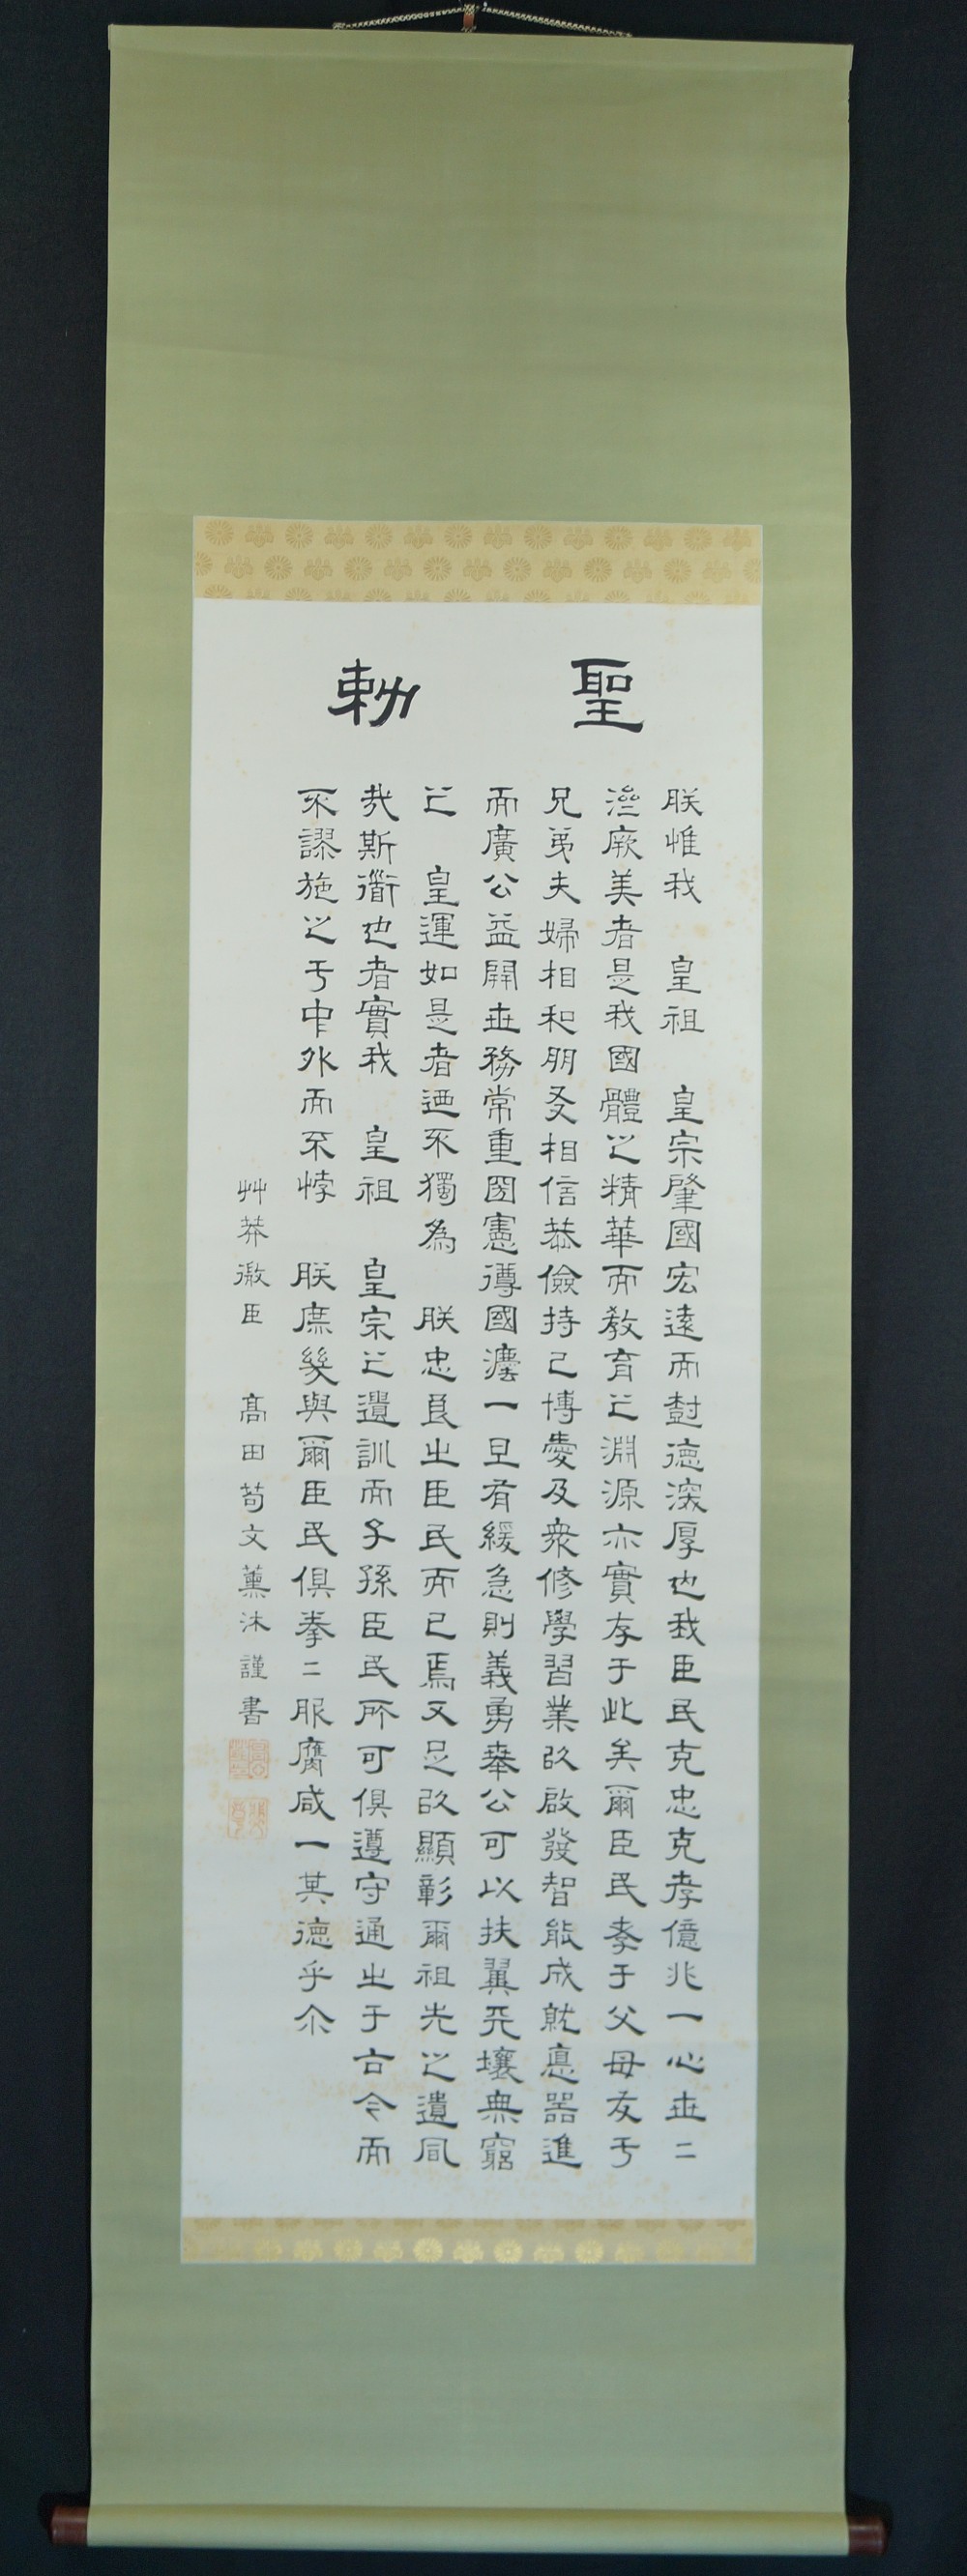 聖勅
朕惟我　皇祖　皇宗肇國宏遠而尌德深厚也我臣民克忠克孝億兆一心世二
濟厥美者是我國體之精華而教育之淵源亦實存于此矣爾臣民孝于父母友于
兄弟夫婦相和朋友相信恭儉持己博愛及衆修學習業以啟發智能成就悳器進
而廣公益開世務常重圀憲遵國灋一旦有緩急則義勇奉公可以扶翼天壤無窮
之　皇運如是者迺不獨為　朕忠良之臣民而已焉又足以顯彰爾祖先之遺風
哉斯衟也者實我　皇祖　皇宗之遺訓而子孫臣民所可俱遵守通之于古今而
不謬施之于中外而不悖　朕庶幾與爾臣民俱拳二服膺咸一其德乎尒
艸莽微臣　髙田荀文薰沐謹書